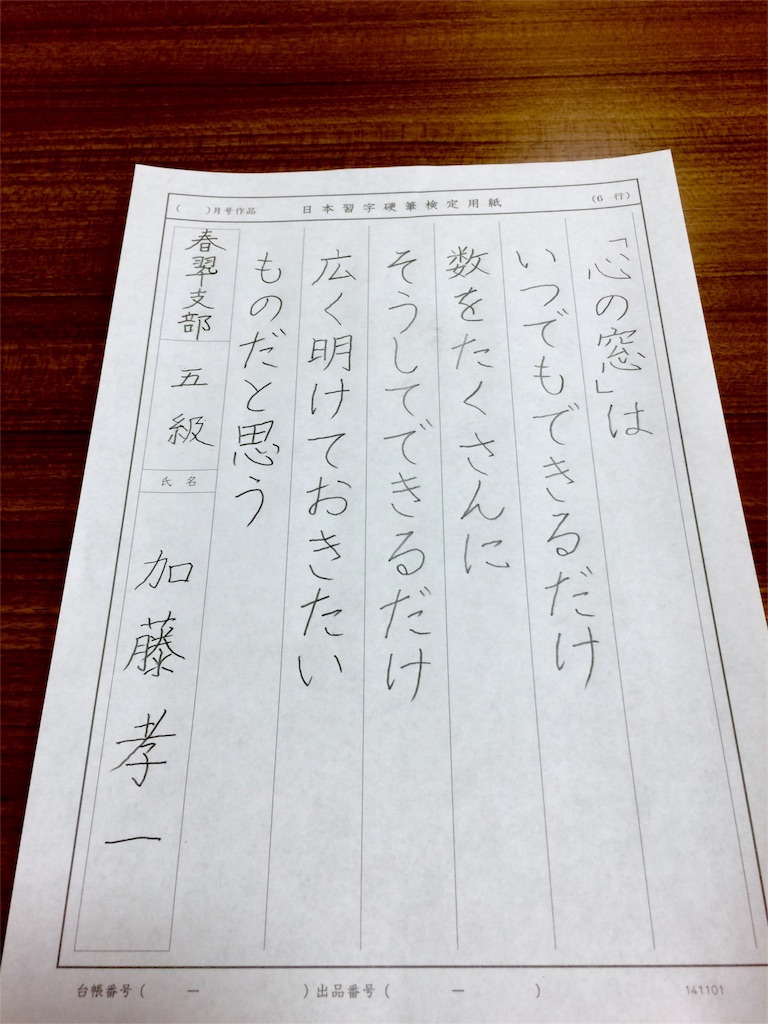 (　　)月号作品　日本習字硬筆検定用紙　(6　行)
「心の窓」は
いつでもできるだけ
数をたくさんに
そうしてできるだけ
広く明けておきたい
ものだと思う
春翠支部
五級
氏名
加藤孝一
台帳番号(　　ー　　)出品番号(　　ー　　)　141101